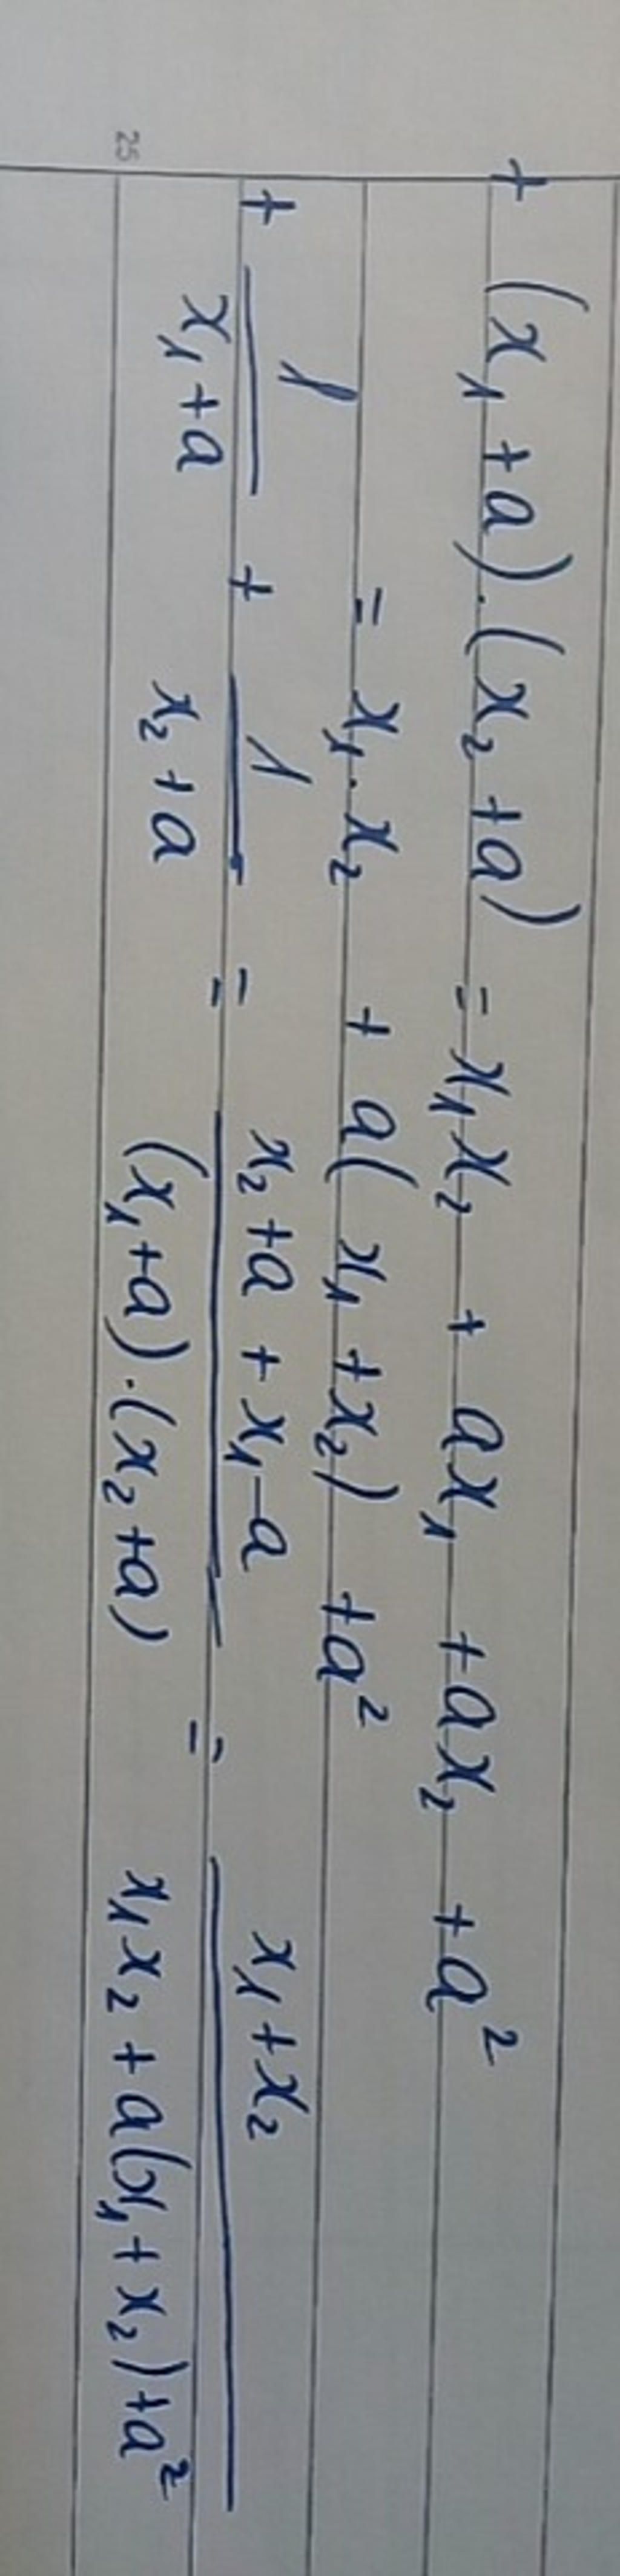 + (x₁ + a) · (x₂ + a) = x₁x₂ + ax₁ + ax₂ + a²
= x₁ · x₂ + a(x₁ + x₂) + a²
+ 1/(x₁ + a) + 1/(x₂ + a) = (x₂ + a + x₁ - a)/((x₁ + a) · (x₂ + a)) = (x₁ + x₂)/(x₁x₂ + a(x₁ + x₂) + a²)
25